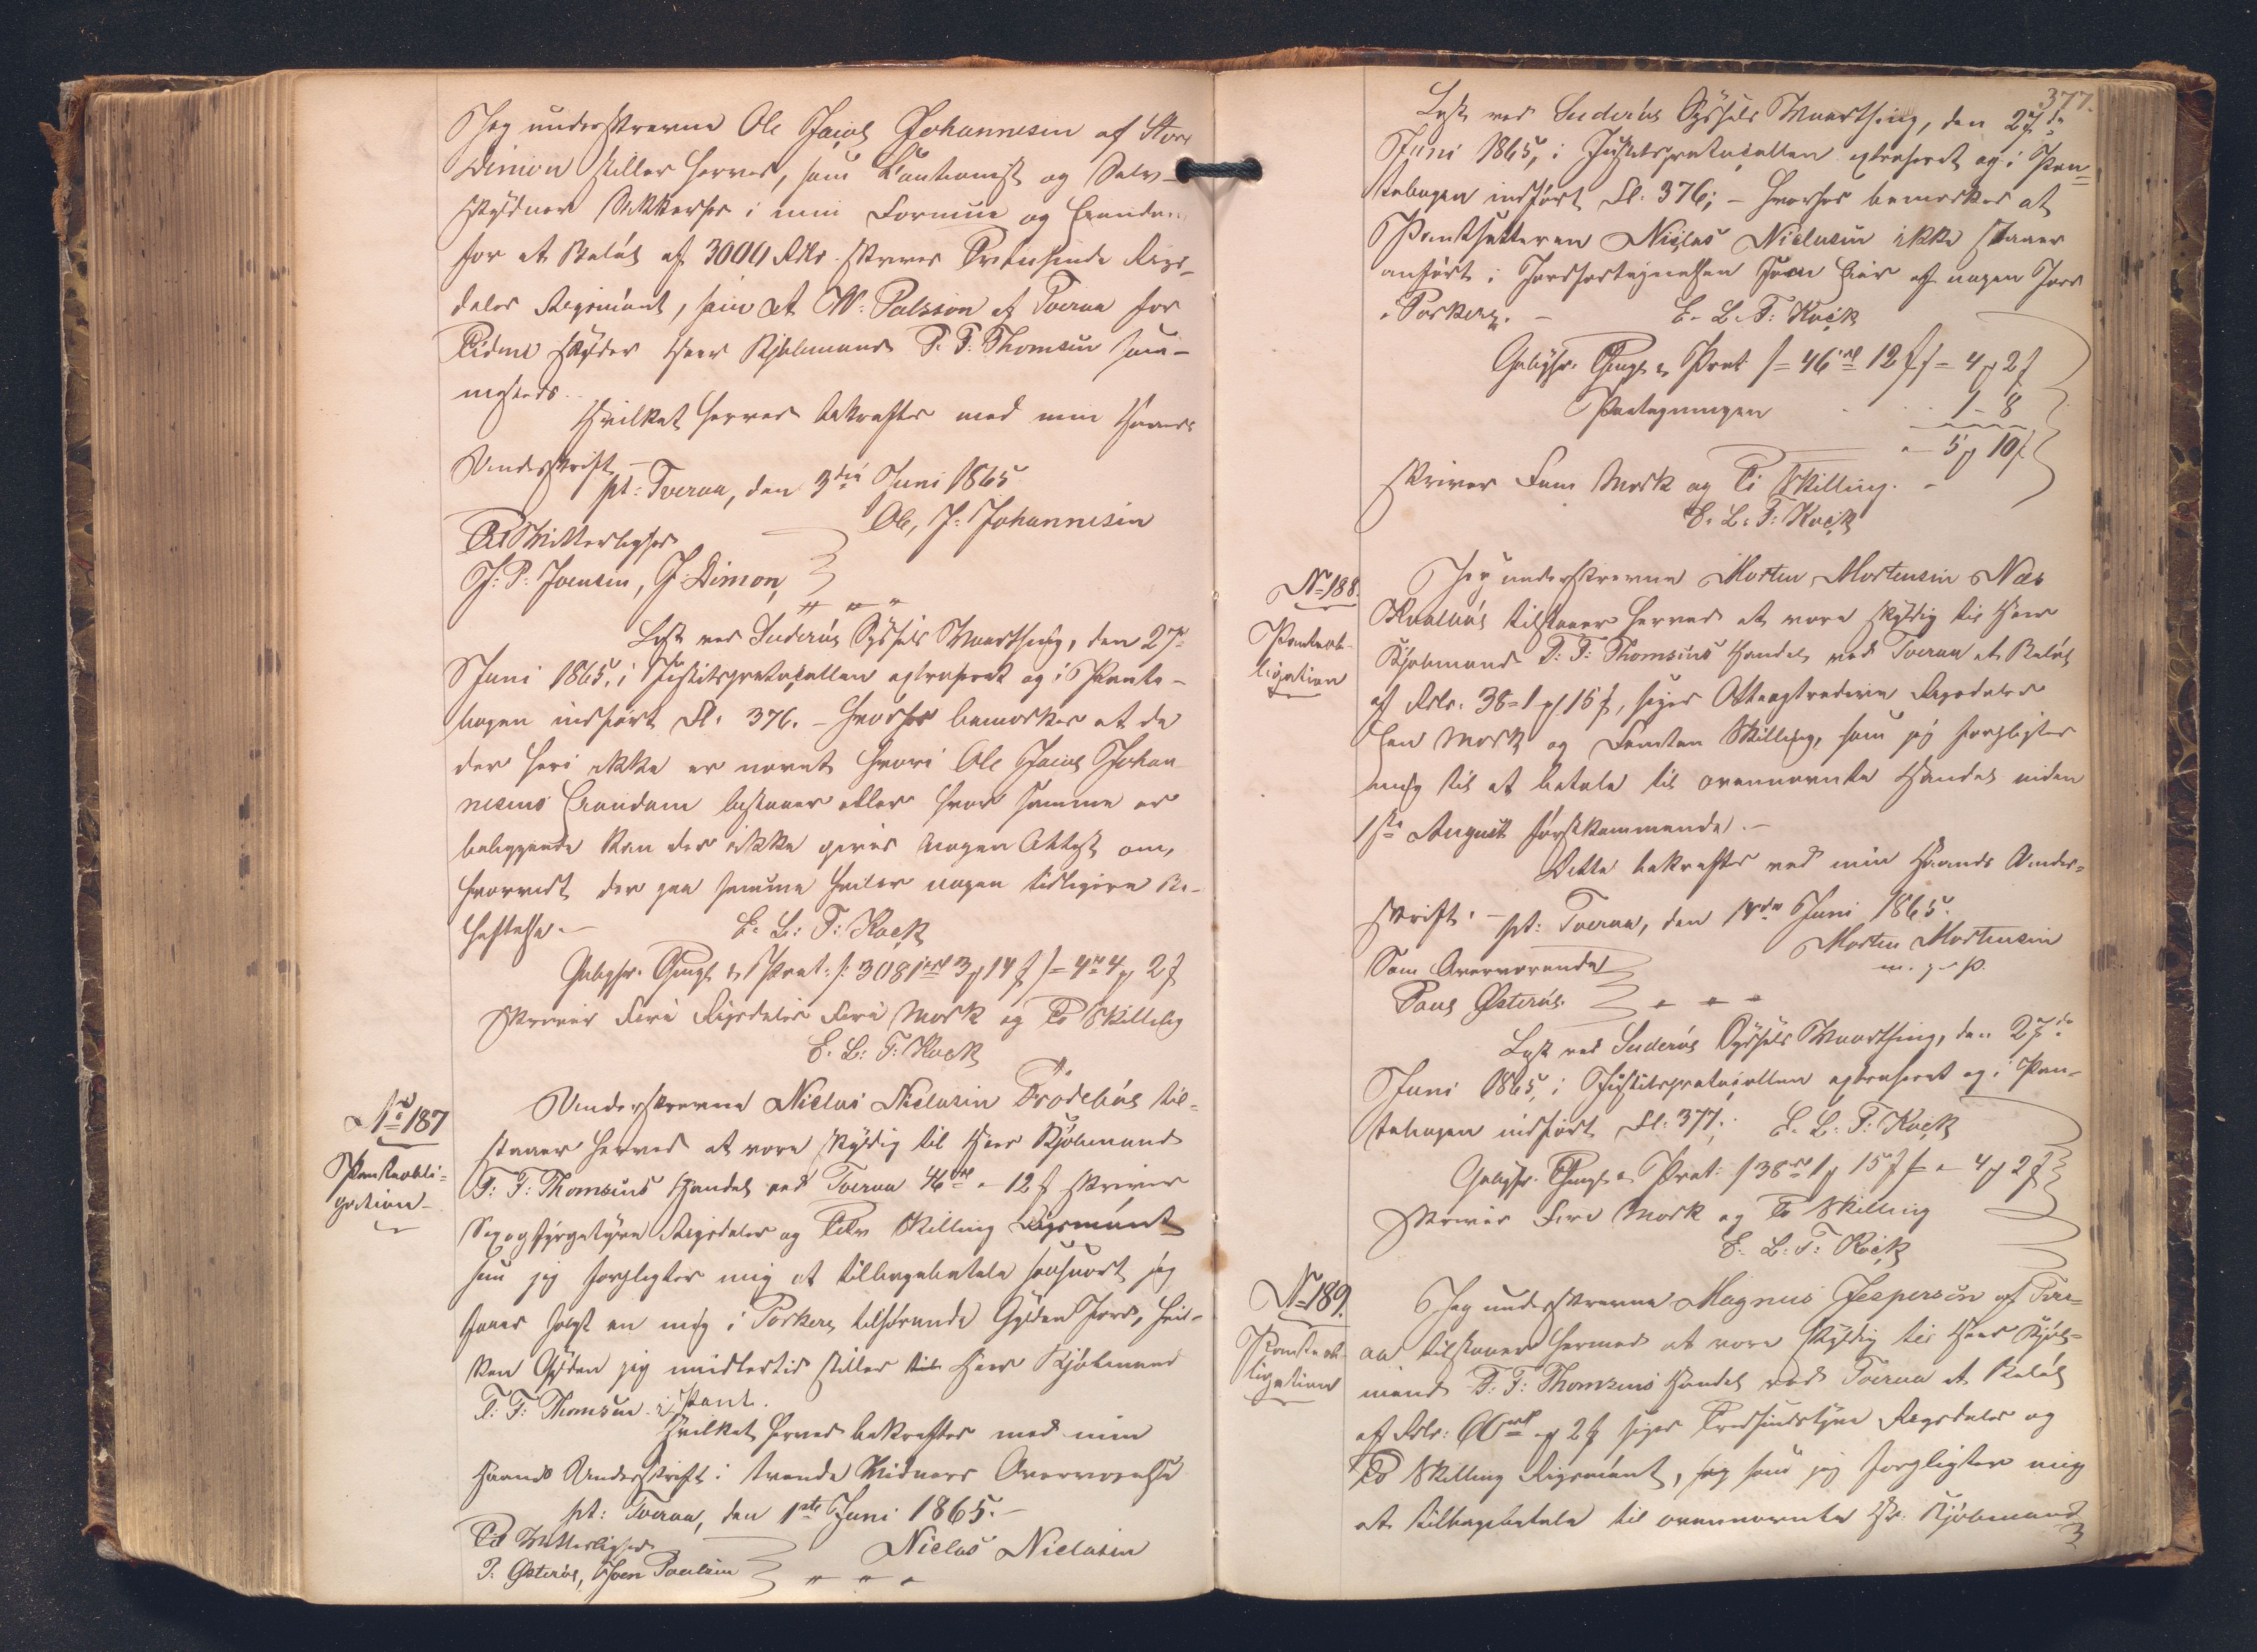 Jeg underskrevne Ole Jacob Johannesen af Store
Dimon stiller herved, som Cautionist og Selv-
skyldner Sikkerhed i min Formue og Eiendom
for et Beløb af 3000 Rdlr skriver Tretusinde Rigs-
daler Rigsmønt, som et W: Poulsson af Tveraa for
Tiden skylder Herr Kjøbmand T. F. Thomsen sam-
mesteds.
Hvilket herved bekræftes med min Haands
Underskrift.
pt: Tveraa, den 3die Juni 1865
Ole, J: Johannesen
Til Vitterlighed
J: P: Joensen, J: Dimon,
Læst ved Suderøe Syssels Vaarthing, den 27de
Juni 1865, i Justitsprotocollen extraheret og i Pante-
bogen indført Fl. 376. – hvorhos bemærkes at da
der heri ikke er nævnt hvori Ole Jacob Johan
nesens Eiendom bestaaer eller hvor samme er
beliggende kan der ikke gives nogen Attest om,
hvorvidt der paa samme hviler nogen tidligere Be-
hæftelse. – E. L: T: Kock
Gebyhr. Thingl. & Prot: /: 3081 rd 3 mk 14 s /= 4 rd 4 mk 2 s
skriver Fire Rigsdaler Fire Mark og To Skilling
E. L: T: Kock
No 187
Panteobli-
gation
Underskrevne Niclas Niclasen Frodebøe til-
staaer herved at være skyldig til Herr Kjøbmand
T: F: Thomsens Handel ved Tveraa 46 rd - 12 s skriver
Sexogfyrgetyve Rigsdaler og Tolv Skilling Rigsmønt
som jeg forpligter mig at tilbagebetale saasnart jeg
faaer solgt en mig i Porkere tilhørende Gylden Jord, hvil-
ken Gylden jeg imidlertid stiller til Herr Kjøbmand
T: F: Thomsen i Pant.
Hvilket herved bekræftes med min
Haands Underskrift i tvende Vidners Overværelse
pt: Tveraa, den 1ste Juni 1865. –
Til Vitterlighed
Niclas Niclasen
P. Østerøe, Joen Poulsen
377.
Læst ved Suderøe Syssels Vaarthing, den 27de
Juni 1865, i Justitsprotocollen extraheret og i Pan-
tebogen indført Fl. 376; – hvorhos bemærkes at
Pantsætteren Niclas Niclasen ikke staaer
anført i Jordfortegnelsen som Eier af nogen Jord
i Porkere. – E. L. T: Kock
Gebyhr. Thingl. & Prot /= 46 rd 12 s /= 4 mk 2 s
Paategningen 1 - 8
5 mk 10 s
skriver Fem Mark og Ti Skilling. –
E. L: T: Kock
No 188.
Panteob-
ligation
Jeg underskrevne Morten Mortensen Næs
Kvalbøe tilstaaer herved at være skyldig til Herr
Kjøbmand T: F: Thomsens Handel ved Tveraa et Beløb
af Rdlr. 38 - 1 mk 15 s, siger Otteogtredive Rigsdaler
Een Mark og Femten Skilling, som jeg forpligter
mig til at betale til ovennævnte Handel inden
1ste August førstkommende. –
Dette bekræftes ved min Haands Under-
skrift. – pt. Tveraa, den 14de Juni 1865.
Morten Mortensen
Som Overværende
m. p. P.
Poul Østerøe.
Læst ved Suderøe Syssels Vaarthing, den 27de
Juni 1865, i Justitsprotocollen extraheret og i Pan-
tebogen indført Fl: 377. E. L: T: Kock
Gebyhr. Thingl. & Prot: / 38 rd 1 mk 15 s /= 4 mk 2 s
skriver Fire Mark og To Skilling
E. L: T: Kock
No 189.
Panteob-
ligation
Jeg underskrevne Magnus Jespersen af Tver-
aa tilstaaer hermed at være skyldig til Herr Kjøb-
mand T: F: Thomsens Handel ved Tveraa et Beløb
af Rdlr: 60 rd - mk 2 s siger Tredsindstyve Rigsdaler og
To Skilling Rigsmønt, som jeg forpligter mig
at tilbagebetale til ovennævnte Hr. Kjøbmand